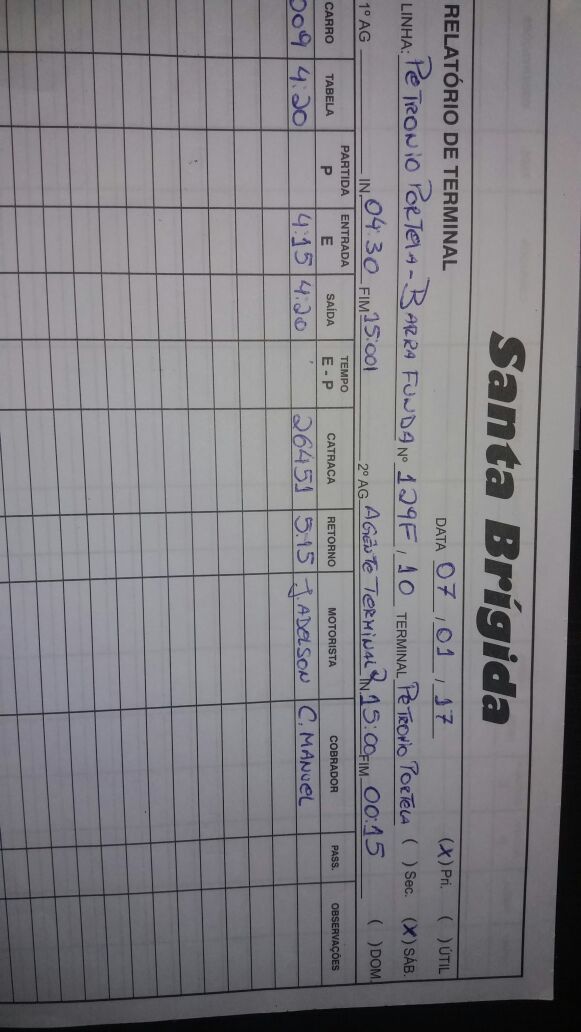 Santa Brígida
RELATÓRIO DE TERMINAL DATA 07 / 01 / 17 (X) Pri. ( ) ÚTIL
LINHA: PETRONIO PORTELA - BARRA FUNDA Nº 129F / 10 TERMINAL PETRONIO PORTELA ( ) Sec. (X) SÁB.
1º AG IN. 04:30 FIM 15:001 2º AG AGENTE TERMINAL 2 IN. 15:00 FIM 00:15 ( ) DOM
CARRO TABELA PARTIDA P ENTRADA E SAÍDA TEMPO E - P CATRACA RETORNO MOTORISTA COBRADOR PASS. OBSERVAÇÕES
009 4:20 4:15 4:20 26451 5:15 J. ADELSON C. MANUEL